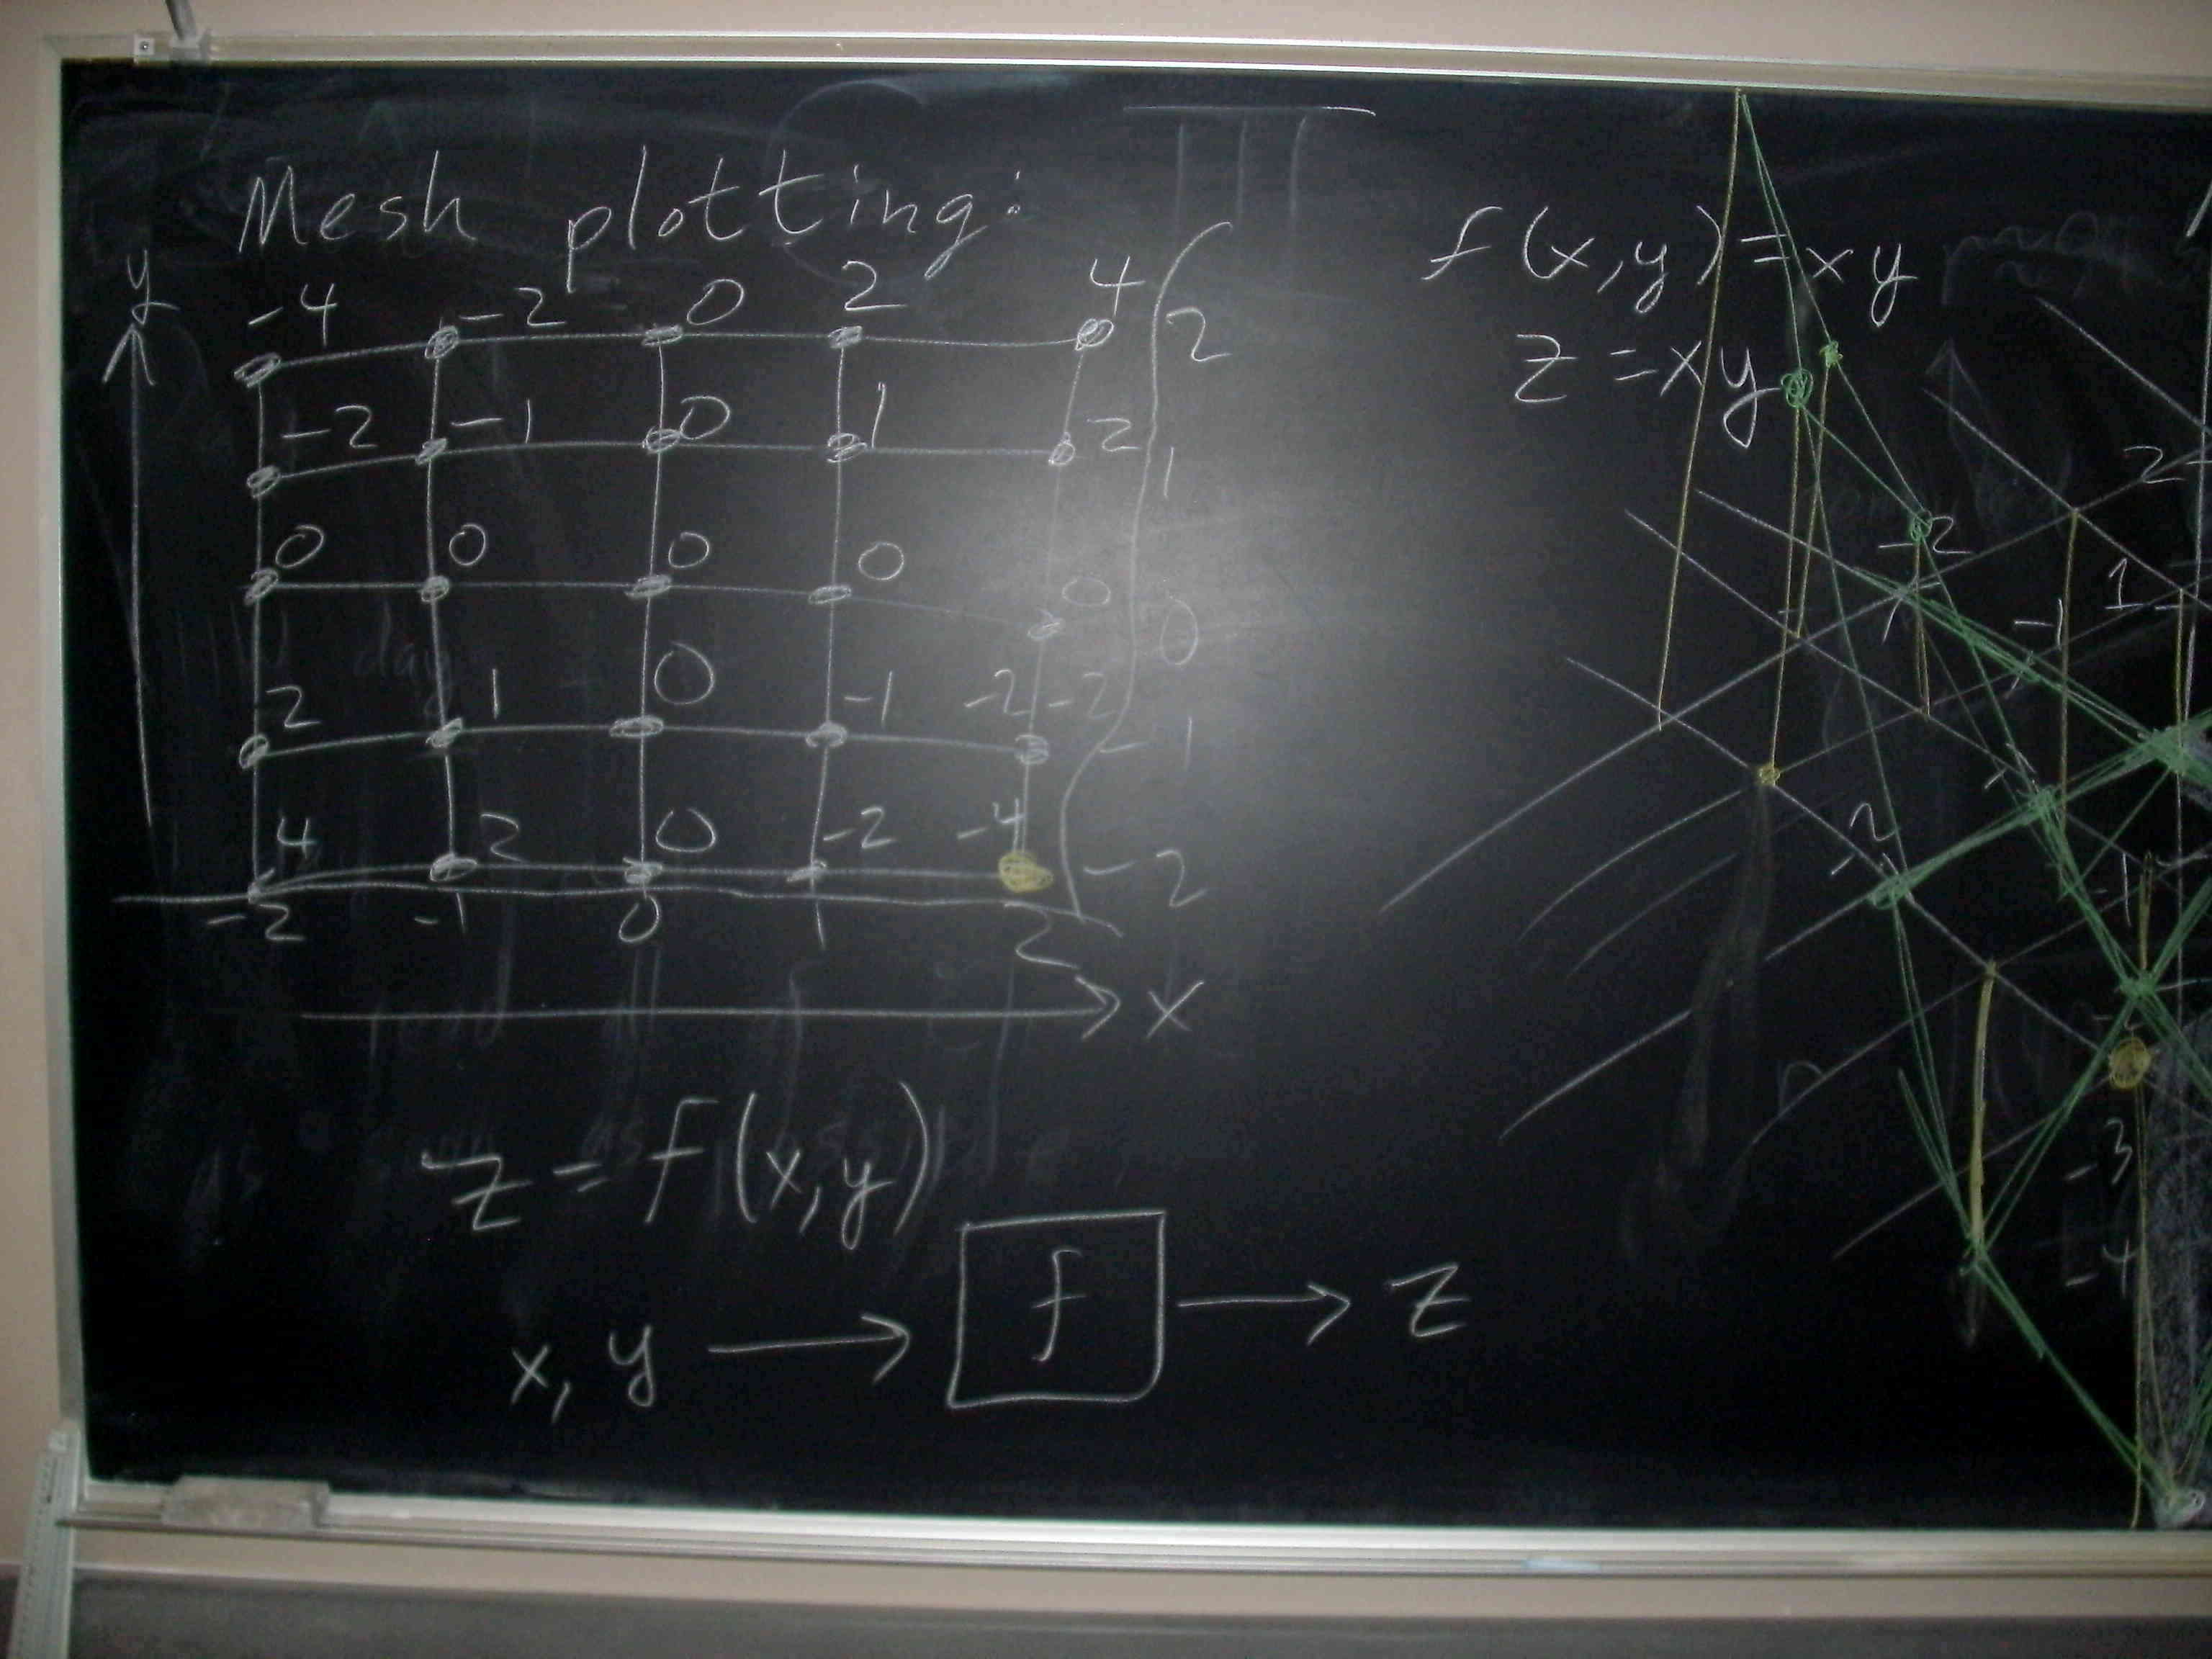 Mesh plotting:
y
-4 -2 0 2 4 2
-2 -1 0 1 2 1
0 0 0 0 0 0
2 1 0 -1 -2 -2 -1
4 2 0 -2 -4 -2
-2 -1 0 1 2
x
z = f(x,y)
x, y → f → z
f(x,y) = xy
z = xy
2
-2
1
-1
-2
-1
-2
-3
-4